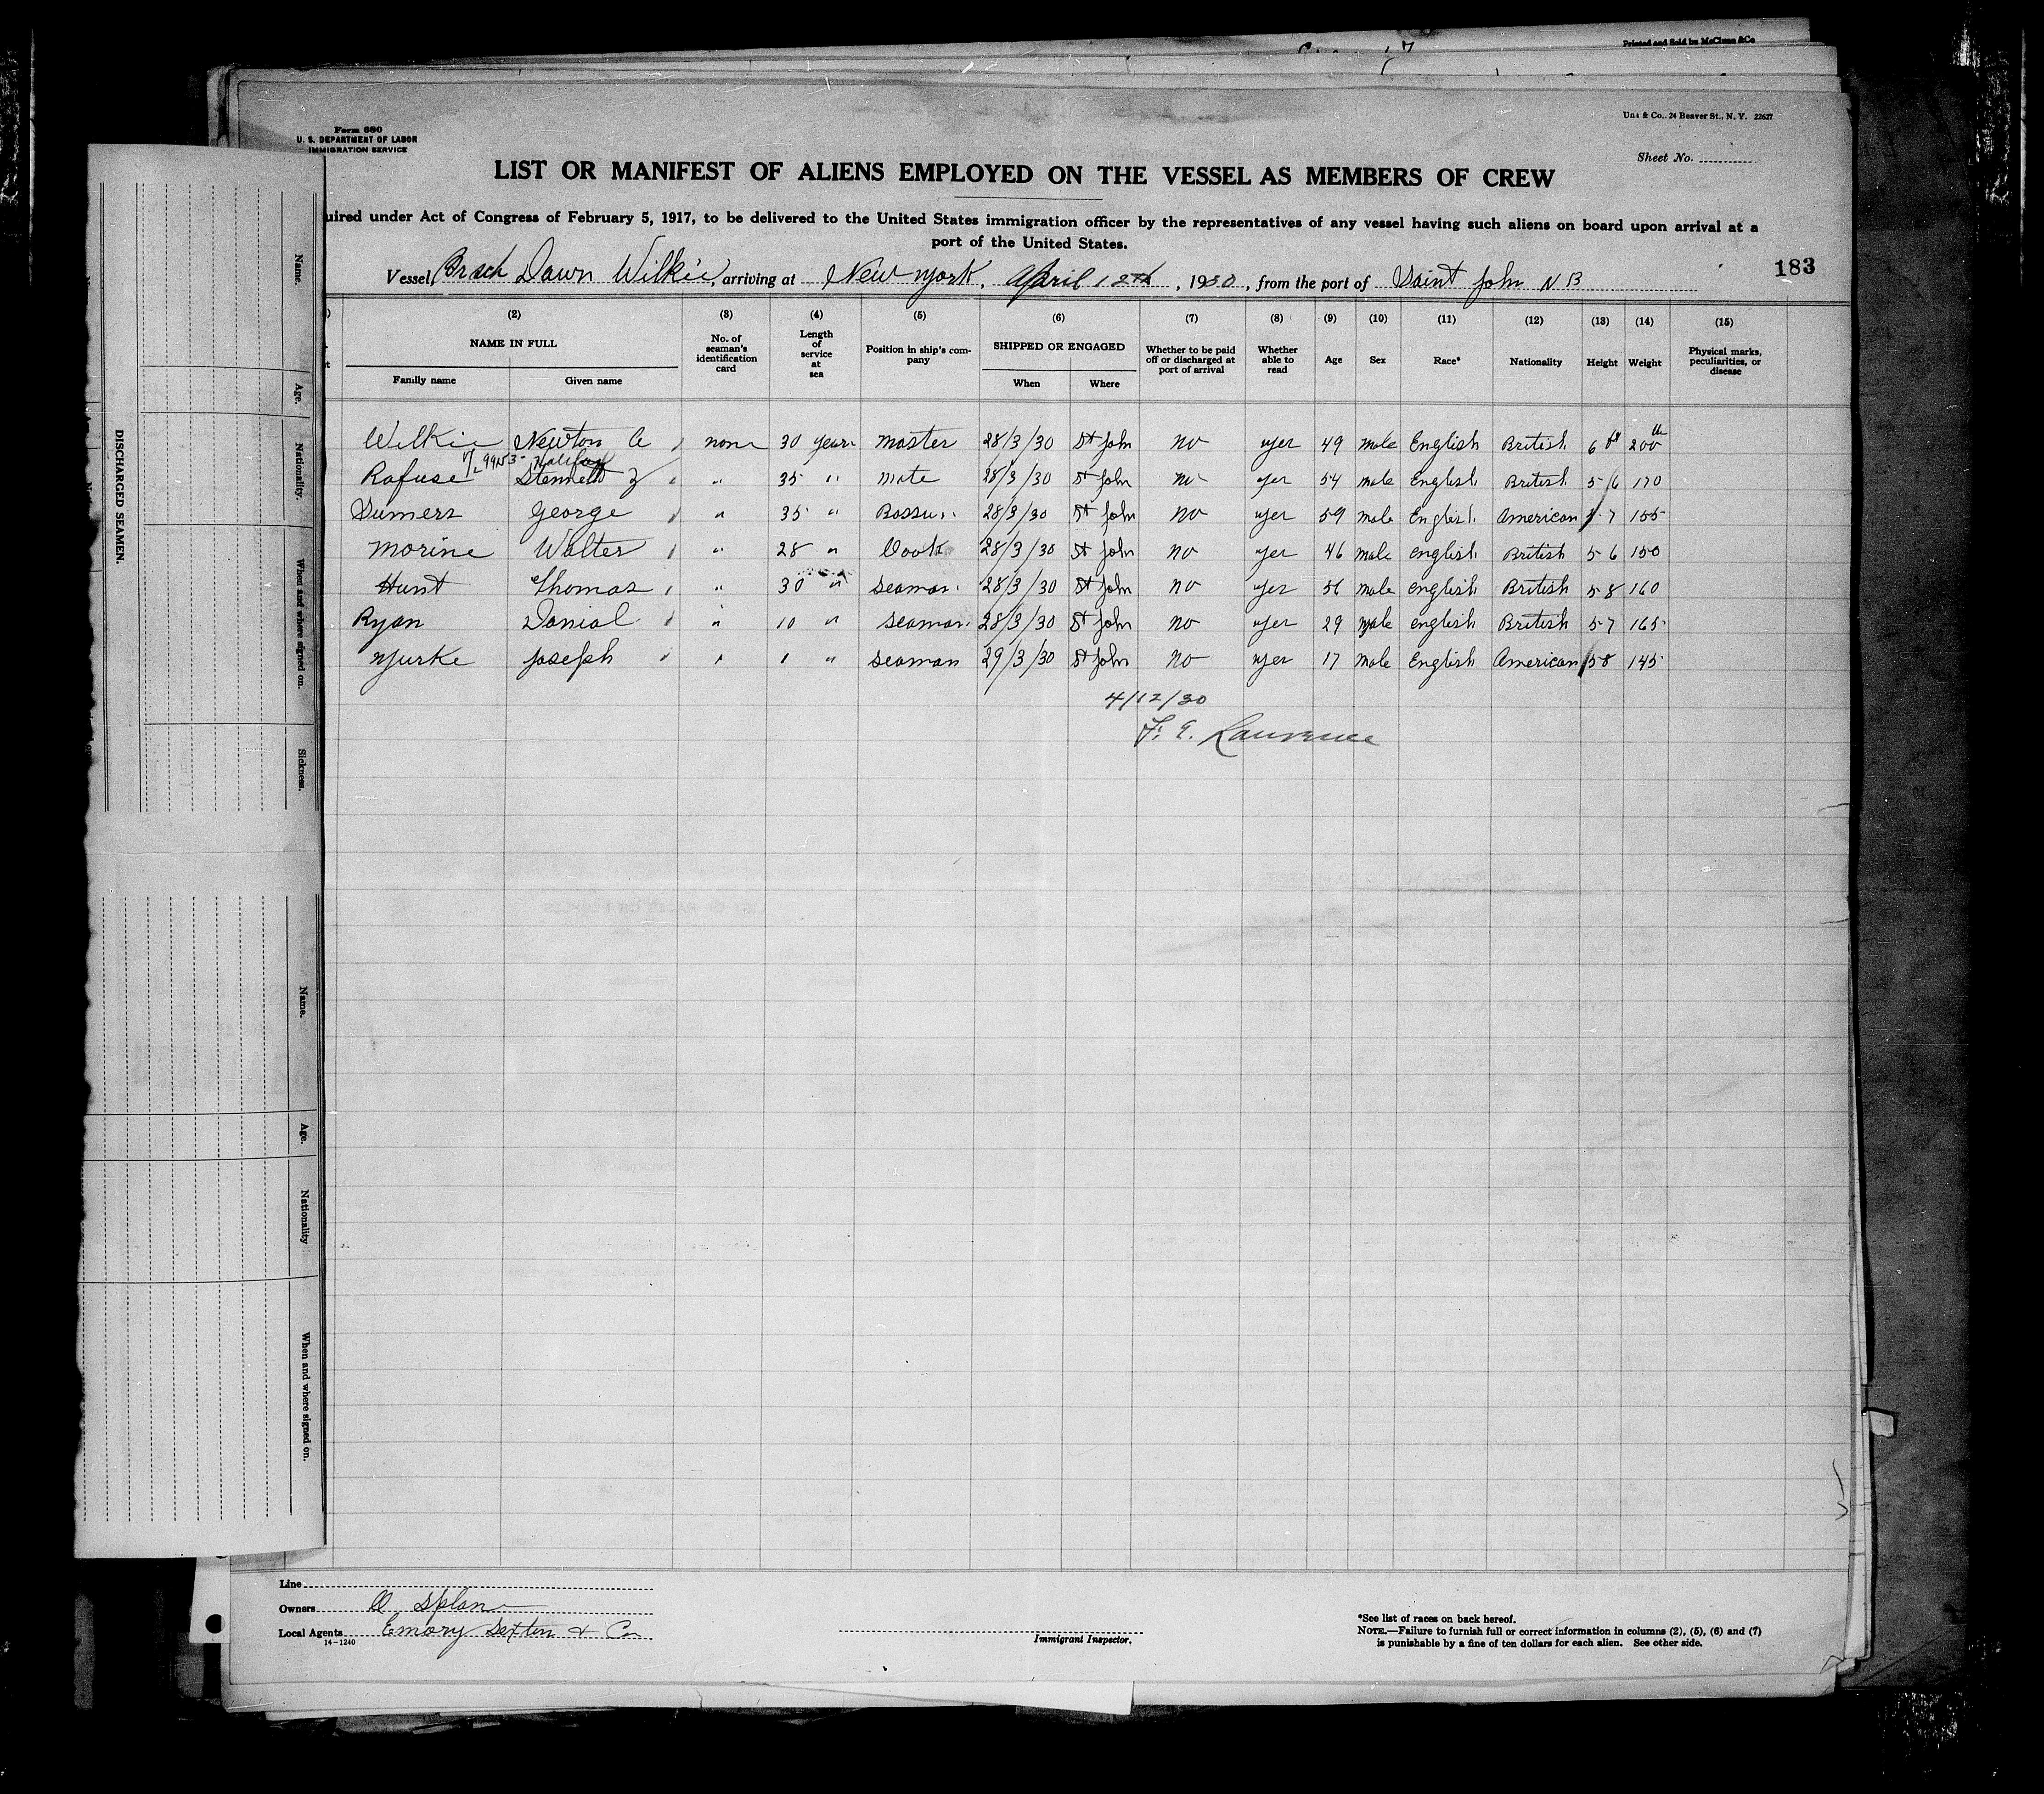 Printed and Sold by McClunn & Co
Form 680
U. S. DEPARTMENT OF LABOR
IMMIGRATION SERVICE
& Co., 24 Beaver St., N. Y. 22627
Sheet No.
LIST OR MANIFEST OF ALIENS EMPLOYED ON THE VESSEL AS MEMBERS OF CREW
uired under Act of Congress of February 5, 1917, to be delivered to the United States immigration officer by the representatives of any vessel having such aliens on board upon arrival at a
port of the United States.
Vessel Dawn Wilkie, arriving at New York, April 12th, 1930, from the port of Saint John N B
183
(2) (3) (4) (5) (6) (7) (8) (9) (10) (11) (12) (13) (14) (15)
NAME IN FULL No. of seaman's identification card Length of service at sea Position in ship's company SHIPPED OR ENGAGED Whether to be paid off or discharged at port of arrival Whether able to read Age Sex Race* Nationality Height Weight Physical marks, peculiarities, or disease
Family name Given name When Where
Wilkie Newton A none 30 years Master 28/3/30 St John no yes 49 male English British 6 ft 200 lb
Halifax
Rafuse 35 " mate 28/3/30 St John no yes 54 male English British 5-6 170
Sumers George " 35 " 28/3/30 St John no yes 59 male English American 5-7 155
Morine Walter " 28 " Cook 28/3/30 St John no yes 46 male English British 5 6 150
Hunt Thomas " 30 " Seaman 28/3/30 St John no yes 56 male English British 5-8 160
Ryan Danial " 10 " seaman 28/3/30 St John no yes 29 male English British 5-7 165
Joseph " 1 " seaman 29/3/30 St John no yes 17 male English American 5 8 145
4/12/30
F. E. Lawrence
DISCHARGED SEAMEN.
Name.
Age.
Nationality.
When and where signed on.
Sickness.
Name.
Age.
Nationality
When and where signed on.
Line
Owners
Local Agents Emory Sexton & Co
14-1240
Immigrant Inspector.
*See list of races on back hereof.
NOTE.—Failure to furnish full or correct information in columns (2), (5), (6) and (7)
is punishable by a fine of ten dollars for each alien. See other side.